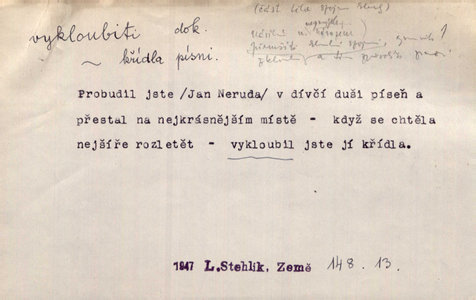 vykloubiti dok.
~ křídla písni.
(část těla
Probudil jste /Jan Neruda/ v dívčí duši píseň a
přestal na nejkrásnějším místě - když se chtěla
nejšíře rozletět - vykloubil jste jí křídla.
1947 L.Stehlík, Země 148. 13.